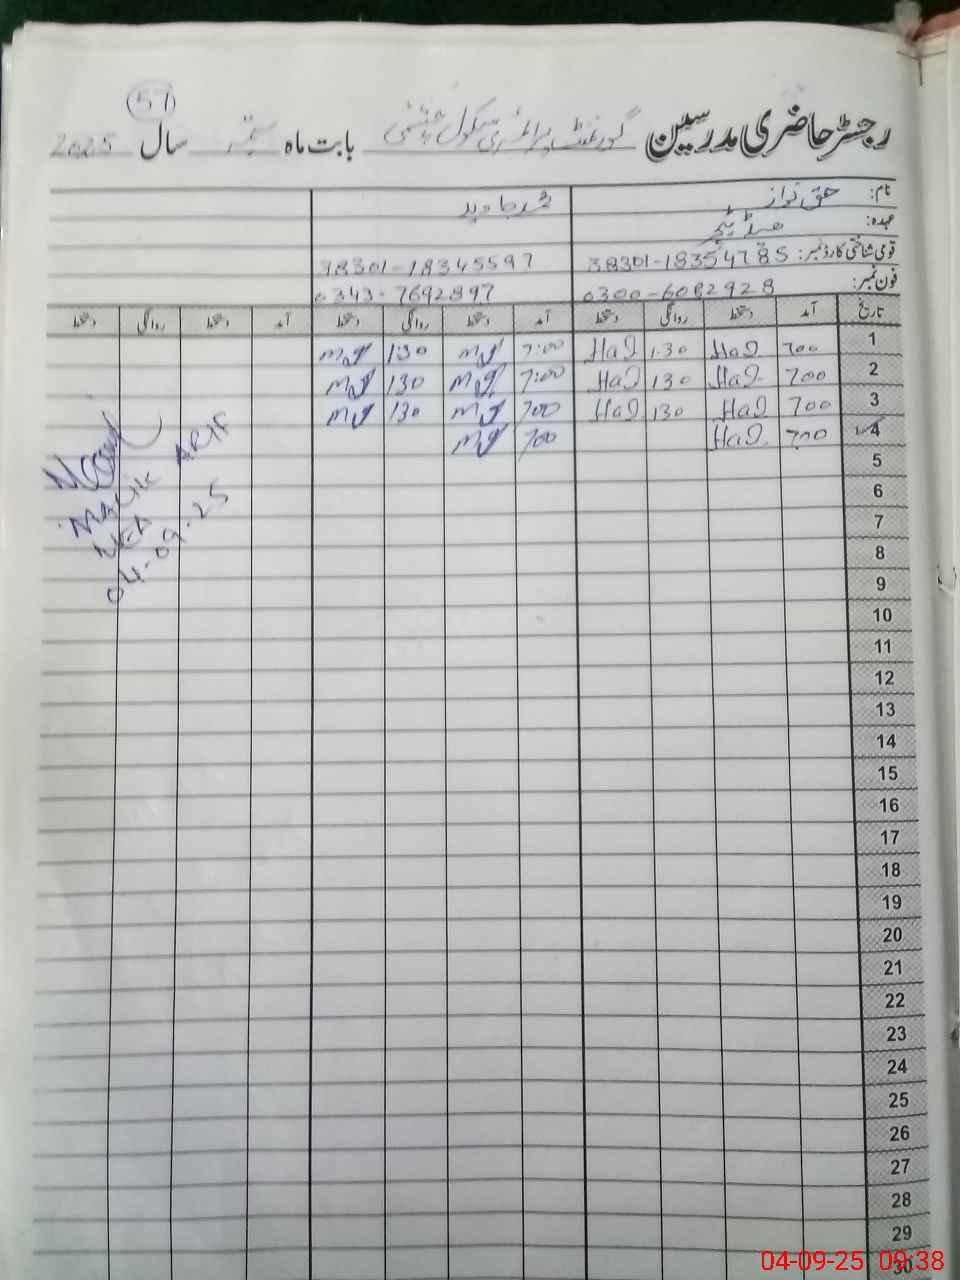 57
رجسٹر حاضری مدرسین گورنمنٹ پرائمری سکول بابت ماہ ستمبر سال 2025
نام: حق نواز محمد جاوید
عہدہ: ہیڈ ٹیچر
قومی شناختی کارڈ نمبر: 38301-18354785 38301-18345597
فون نمبر: 0300-6082928 0343-7692897
تاریخ آمد دستخط روانگی دستخط آمد دستخط روانگی دستخط آمد دستخط روانگی دستخط
1 700 HaQ 1.30 HaQ 7:00 MJ 1:30 MJ
2 700 HaQ 130 HaQ 7:00 MJ 130 MJ
3 700 HaQ 130 HaQ 700 MJ 130 MJ
4 700 HaQ 700 MJ
MALIK ARIF
MEA
04-09-25
5
6
7
8
9
10
11
12
13
14
15
16
17
18
19
20
21
22
23
24
25
26
27
28
29
30
04-09-25 09:38